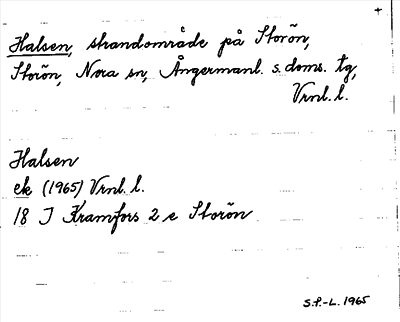 +
Halsen, strandområde på Storön,
Storön, Nora sn, Ångermanl. s. doms. tg,
Vrnl. l.
Halsen
ek (1965) Vrnl. l.
18 J Kramfors 2 e Storön
S.F.-L. 1965